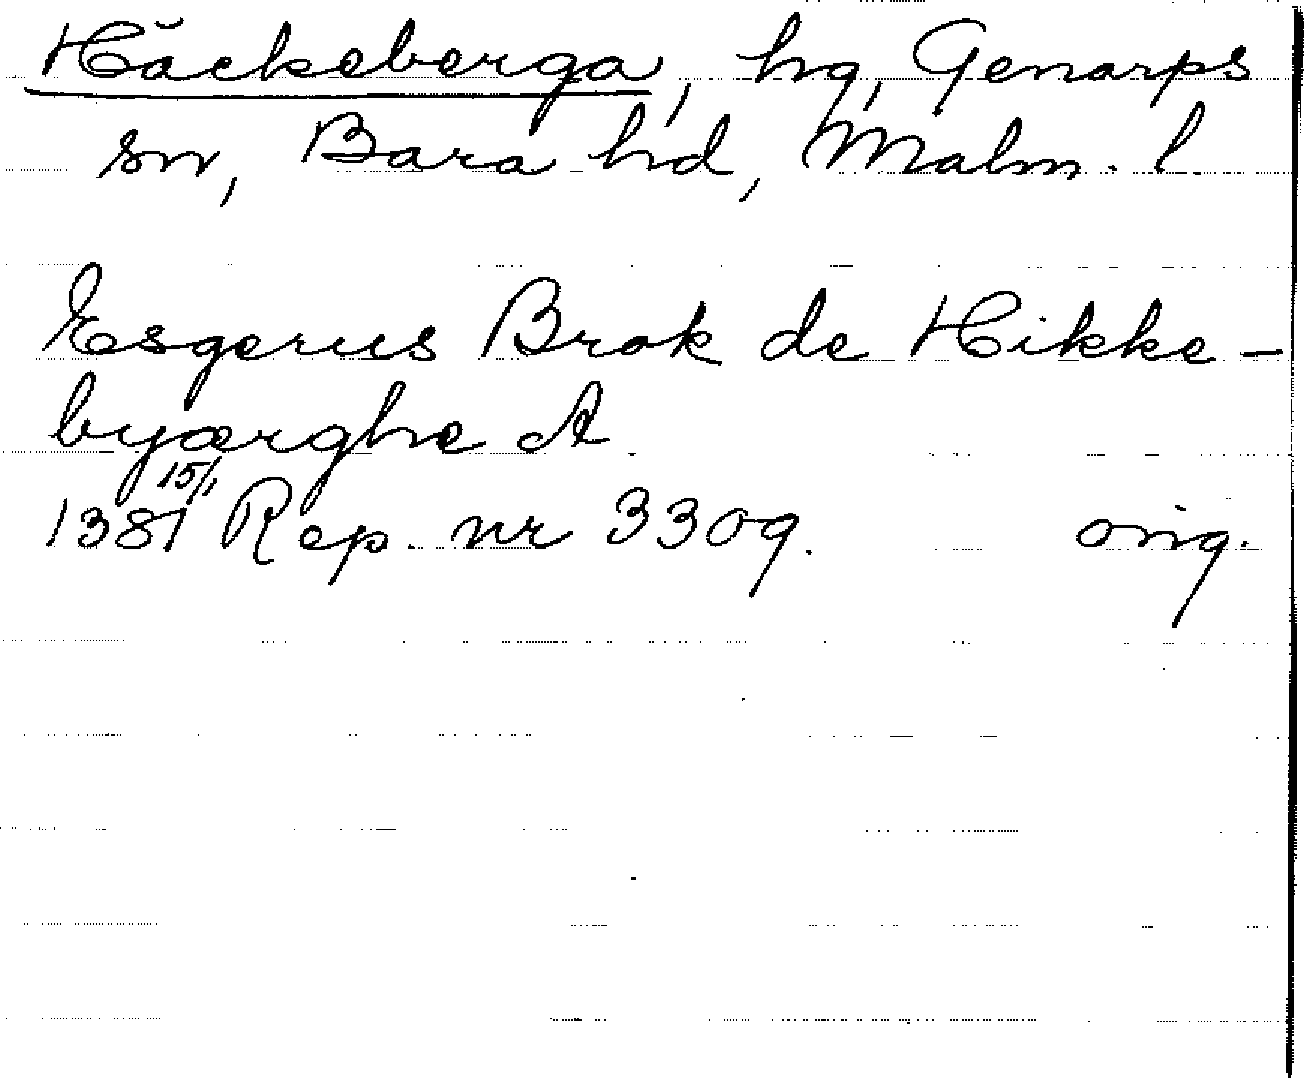 Häckeberga, hg, Genarps
sn, Bara hd, Malm. l.
Esgerus Brok de Hikke-
byærghe A
1381 15/1 Rep. nr 3309. orig.